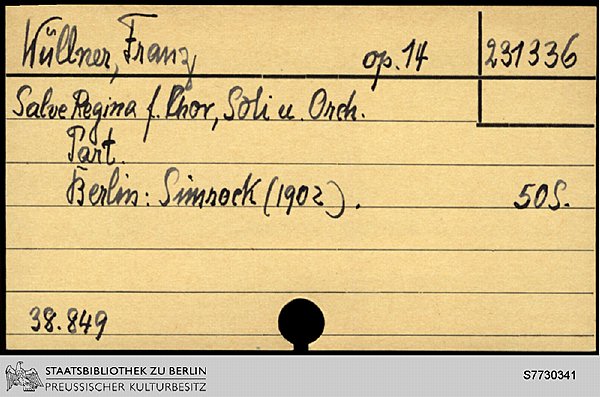 Wüllner, Franz op. 14 231336
Salve Regina f. Chor, Soli u. Orch.
Part.
Berlin: Simrock (1902). 50S.
38.849
STAATSBIBLIOTHEK ZU BERLIN
PREUSSISCHER KULTURBESITZ
S7730341